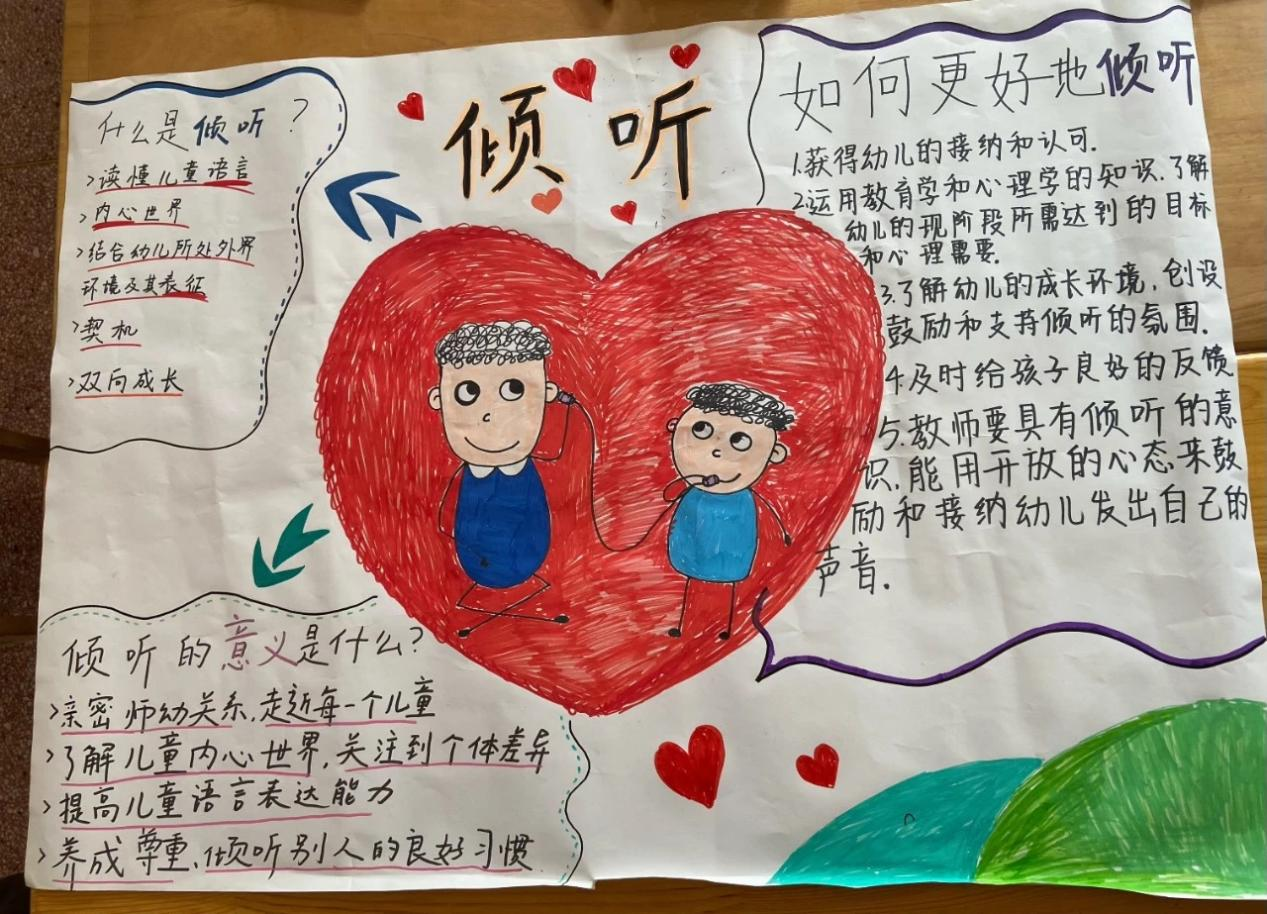 倾听
什么是倾听?
>读懂儿童语言
>内心世界
>结合幼儿所处外界
环境及其表征
>契机
>双向成长
倾听的意义是什么?
>亲密师幼关系,走近每一个儿童
>了解儿童内心世界,关注到个体差异
>提高儿童语言表达能力
>养成尊重、倾听别人的良好习惯
如何更好地倾听
1.获得幼儿的接纳和认可.
2.运用教育学和心理学的知识.了解
幼儿的现阶段所需达到的目标
和心理需要.
3.了解幼儿的成长环境,创设
鼓励和支持倾听的氛围.
4.及时给孩子良好的反馈
5.教师要具有倾听的意
识,能用开放的心态来鼓
励和接纳幼儿发出自己的
声音.